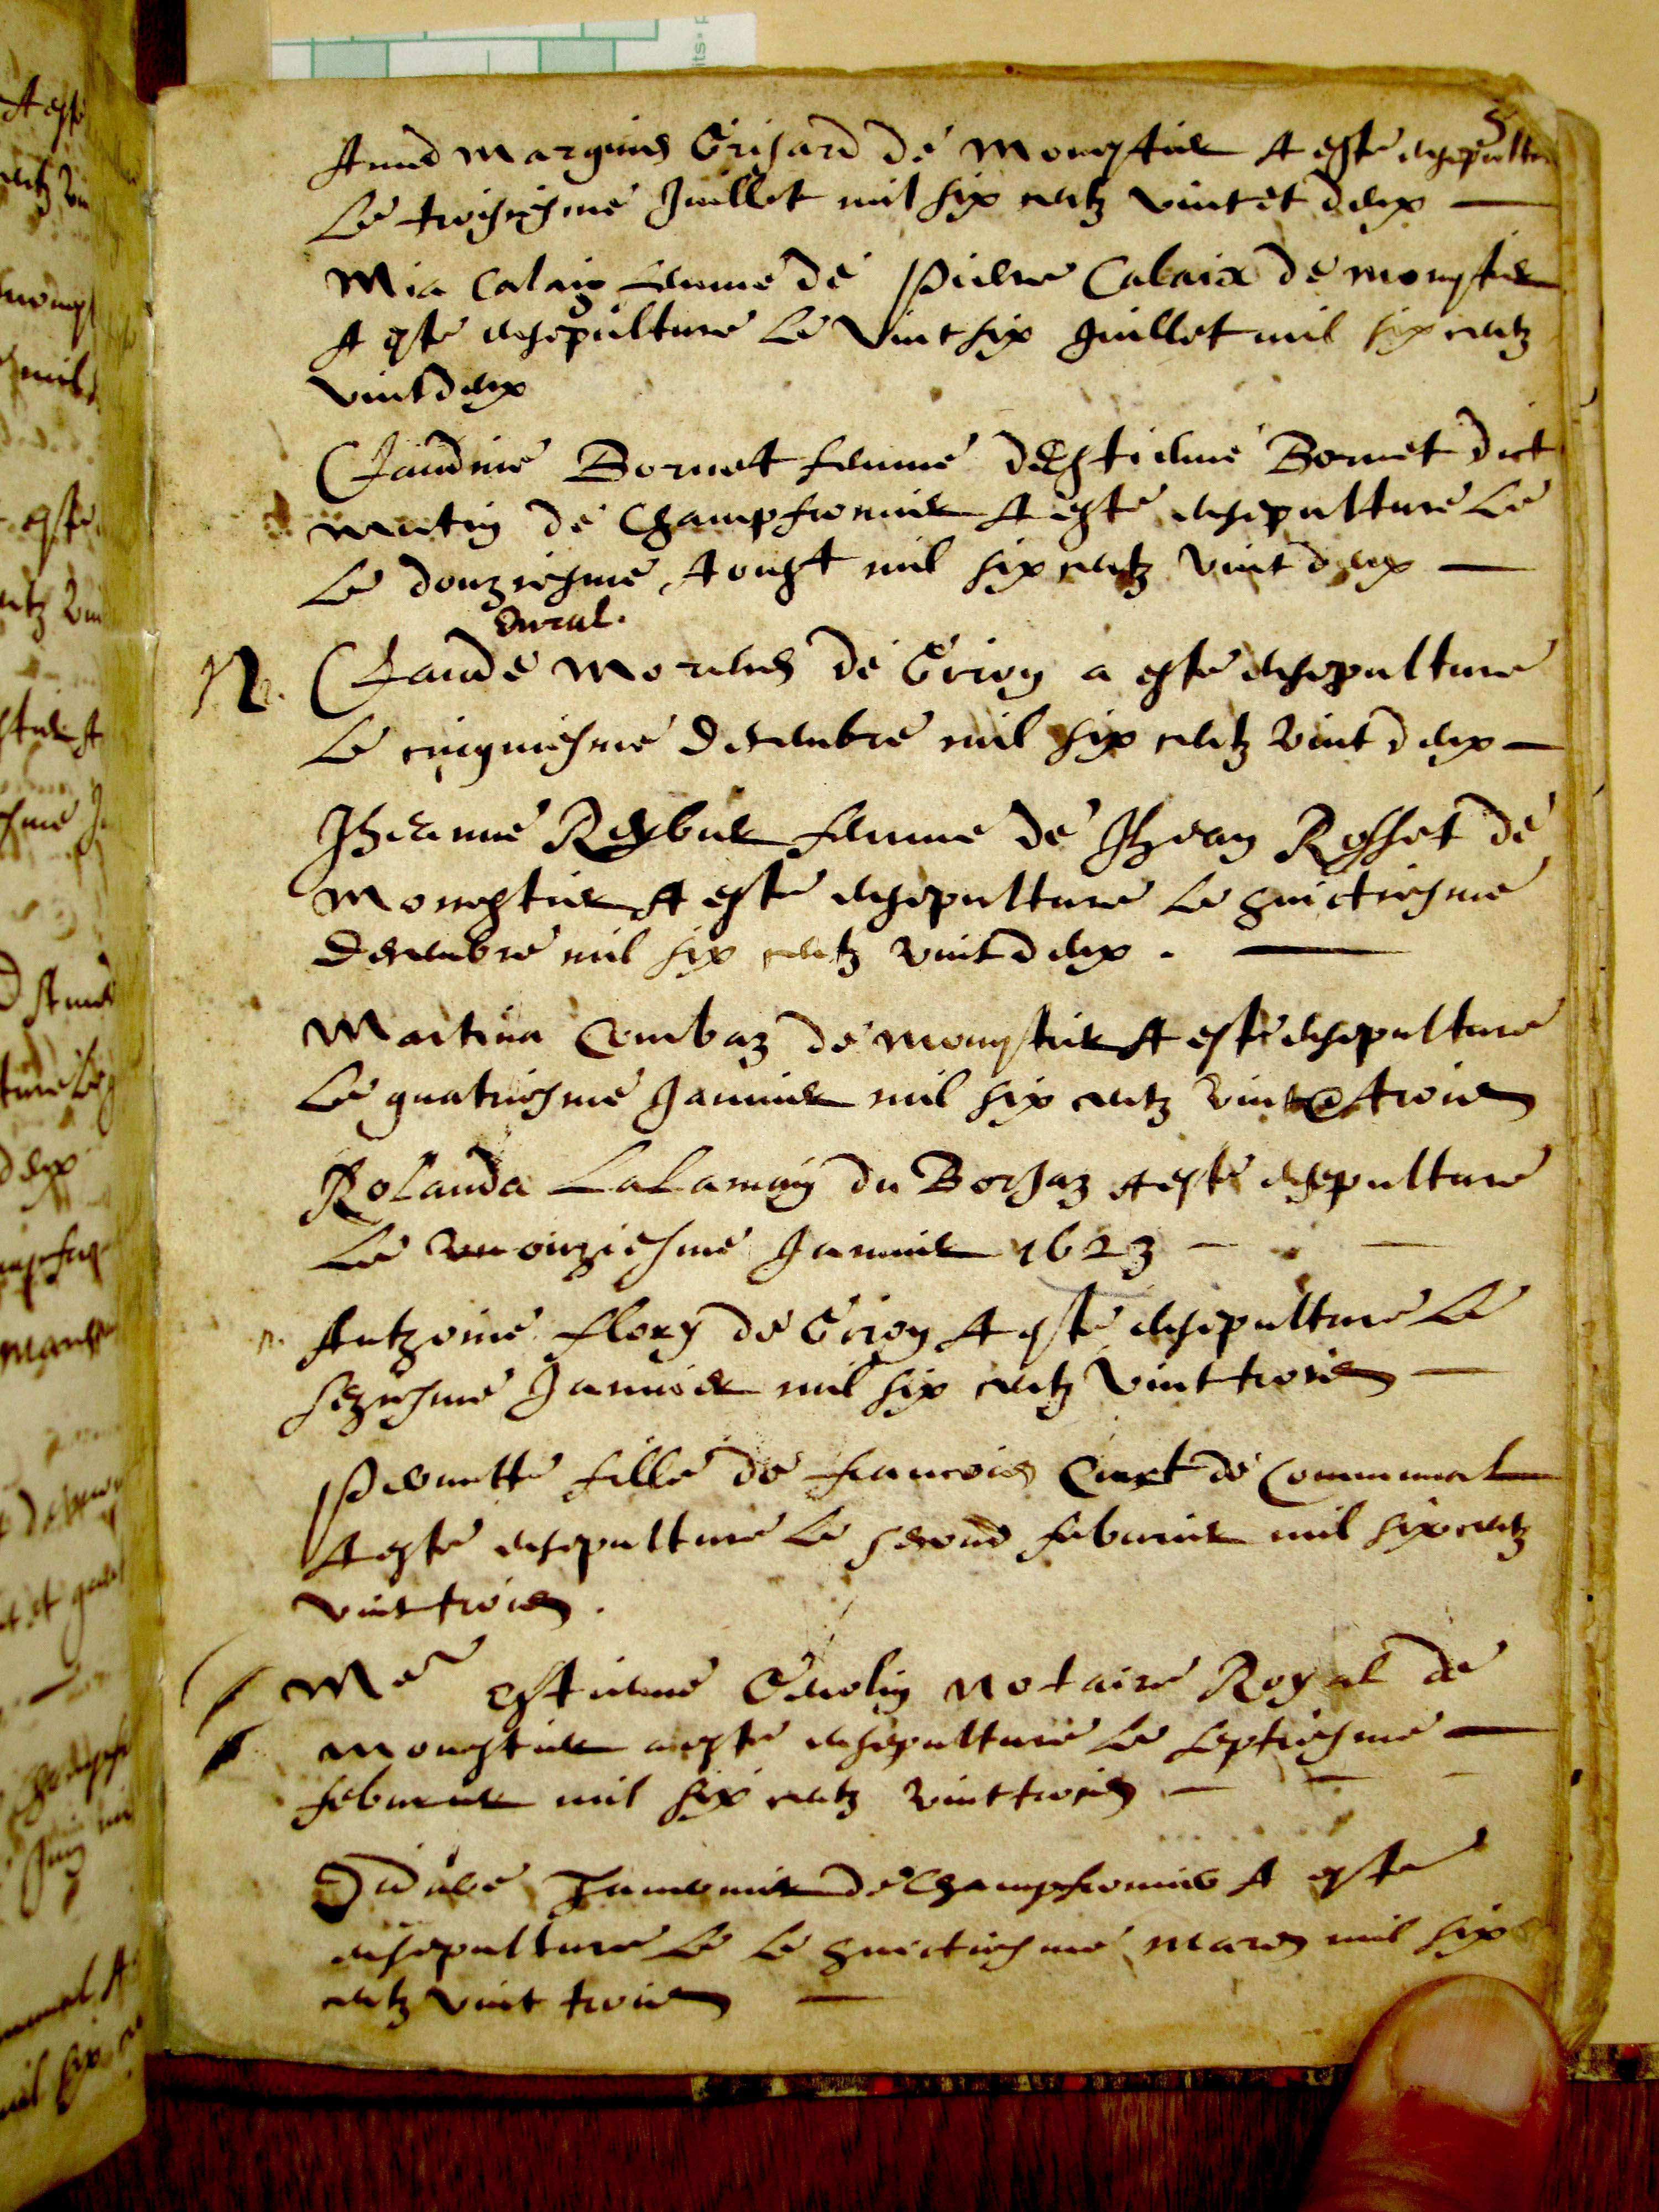 5
And Marguis Grisard de Monestier A esté ensepulturé
Le troisiesme Juillet mil six centz vint et deux
Mia Calaix femme de Pierre Calaix de Monestier
A esté ensepulture Le Vint six Juillet mil six centz
vint deux
Claudine Bornet femme d'Estienne Bornet dict
de Champfromier A esté ensepulture Le
Le douziesme Aoust mil six centz vint deux
Claude de Giron a esté ensepulture
Le cinquiesme Decembre mil six centz vint deux
Jheanne Reybier femme de Jhean Rosset de
Monestier A esté ensepulture Le huictiesme
Decembre mil six centz vint deux .
Martina Combaz de Monestier A esté ensepulture
Le quatriesme Januier mil six centz vint & trois
Rolanda du Borjaz A esté ensepulture
Le onziesme Januier 1623
n. Antzoine Flory de Giron A esté ensepulture Le
seziesme Januier mil six centz Vint trois
Pernette fille de Francois de Communal
A esté ensepulture Le second feburier mil six centz
vint trois .
Me Estienne Genolin Notaire Royal de
Monestier a esté ensepulture Le septiesme
feburier mil six centz vint trois
de Champfromier A esté
ensepulture Le Le huictiesme Mars mil six
centz vint trois